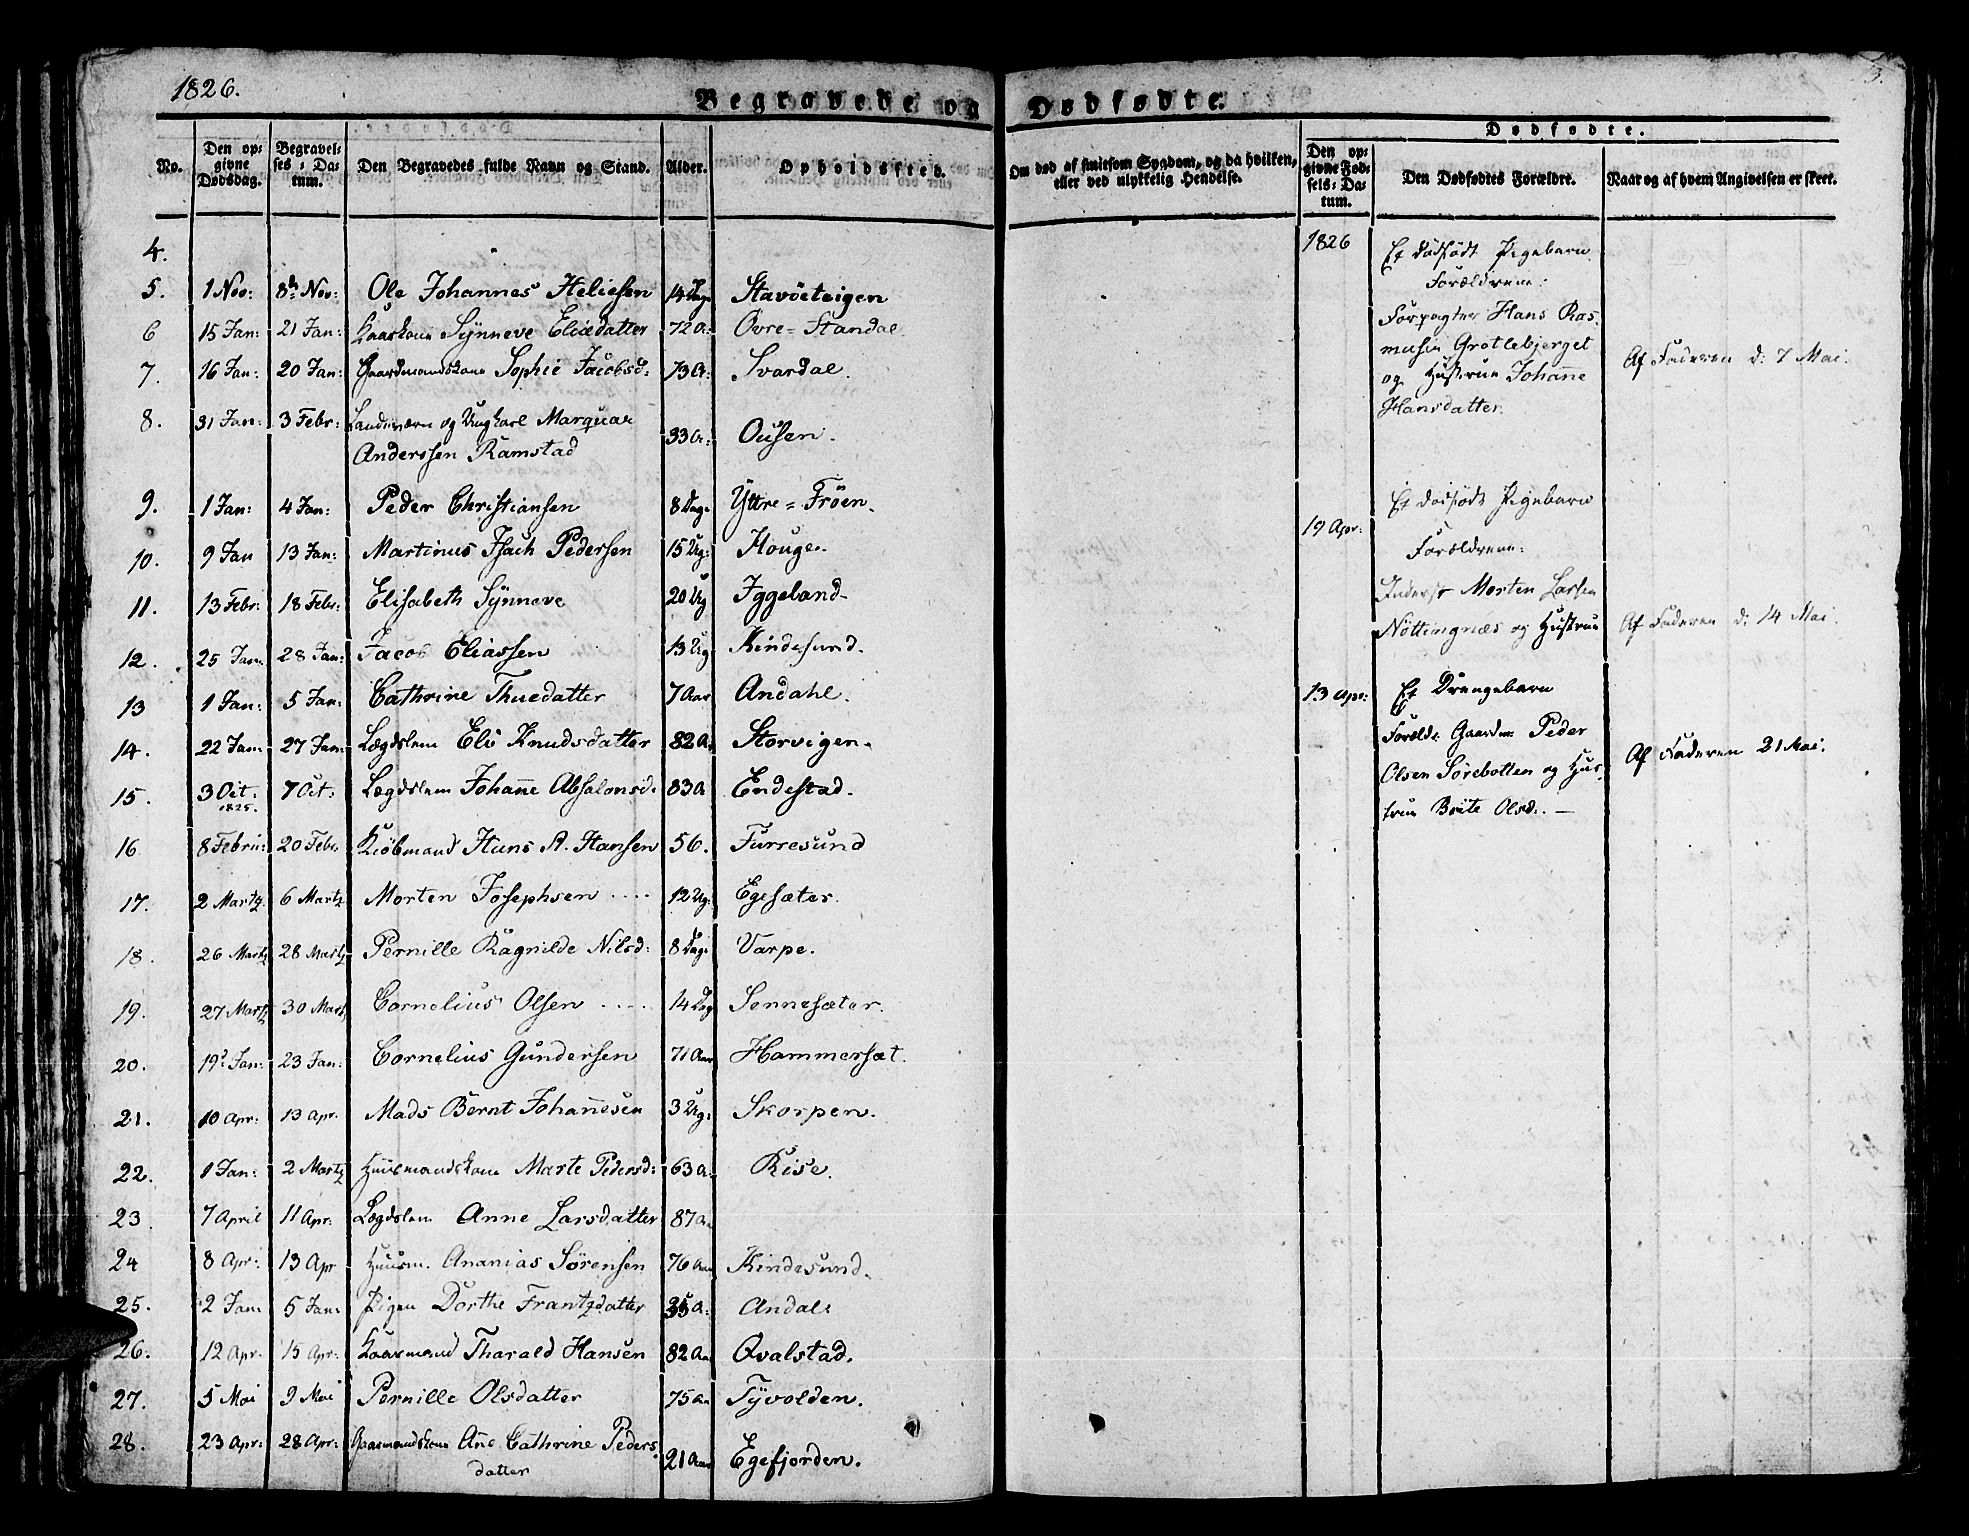 1826.
3.
Begravede og Dødfødte.
Dødfødte.
No. Den opgivne Dødsdag. Begravelses-Datum. Den Begravedes fulde Navn og Stand. Alder. Opholdssted. Om død af smitsom Sygdom, og da hvilken, eller ved ulykkelig Hendelse. Den opgivne Fødsels-Datum. Den Dødfødtes Forældre. Naar og af hvem Angivelsen er skeet.
4.
5. 1 Nov: 8de Nov: Ole Johannes Heliesen 14 Dage Stavöeteigen
6 15 Jan: 21 Jan: Kaarkone Sÿnneve Eliædatter 72 A: Ovre=Standal
7. 16 Jan: 20 Jan: Gaardmandskone Sophie Jacobsd: 73 A: Svardal.
8. 31 Jan: 3 Febr: Landeværn og Ungkarl Marquar
Anderssen Ramstad 33 A: Ousen.
9. 1 Jan: 4 Jan: Peder Christiansen 8 Dag: Yttre=Fröen.
10. 9 Jan 13 Jan: Martinus Isach Pedersen 15 Ug: Houge.
11. 13 Febr: 18 Febr: Elisabeth Sÿnneve 20 Ug Iggeland.
12. 25 Jan: 28 Jan: Jacob Eliassen 13 Ug Kindesund.
13 1 Jan: 5 Jan: Cathrine Thuedatter 7 Aar Andahl.
14. 22 Jan: 27 Jan: Lægdslem Eli Knudsdatter 82 A: Storvigen.
15. 3 Oct: 1825. 7 Oct: Lægdslem Johanne Absalonsd. 83 A Endestad.
16 8 Febru: 20 Febr. Kiöbmand Hans A. Hansen 56. Furresund
17. 2 Martz. 6 Martz Morten Josephsen .... 12 Ug: Egesæter.
18. 26 Martz 28 Martz Pernille Ragnilde Nilsd: 8 Dag: Varpe.
19. 27 Martz 30 Martz Cornelius Olsen .... 14 Dag Sennesæter.
20. 19 Jan: 23 Jan: Cornelius Gundersen 71 Aar Hammersæt.
21. 10 Apr: 13 Apr. Mads Bernt Johannesen 3 Ug: Skorpen.
22. 1 Jan: 2 Martz Huusmandskone Marte Pedersd: 63 A: Rise.
23 7 April 11 Apr: Lægdslem Anne Larsdatter 87 A
24 8 Apr: 13 Apr Huusm. Ananias Sörensen 76 Aar Kindesund.
25. 2 Jan: 5 Jan: Pigen Dorthe Frantzdatter 35 A: Andal:
26. 12 Apr. 15 Apr: Kaarmand Tharald Hansen 82 Aa Qvalstad.
27. 5 Mai 9 Mai Pernille Olsdatter 75 Aa Tÿvolden.
28. 23 Apr: 28 Apr: Gaarmandskone Ane Cathrine Peders
datter 21 Aar Egefjorden.
1826 Et dödfödt Pigebarn
Forældrene:
Forpagter Hans Ras.
musen Grotlebjerget
og Hustrue Johanne
Hansdatter.
Af Faderen d: 7 Mai.
19 Apr: Et dödfödt Pigebarn
Forældrene:
Inderst Morten Larsen
Nöttingnæs og Hustrue
Af Faderen d: 14 Mai.
13 Apr: Et Drengebarn
Foræld: Gaardm: Peder
Olsen Sörebotten og Hus.
true Brite Olsd:. —
Af Faderen 21 Mai.